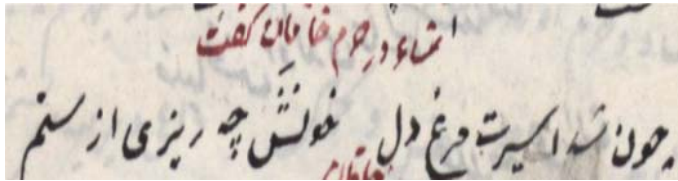 انشاء در حرم خاقان گفت
چون شد اسیرت مرغ دل خونش چه ریزی از ستم
خاقان